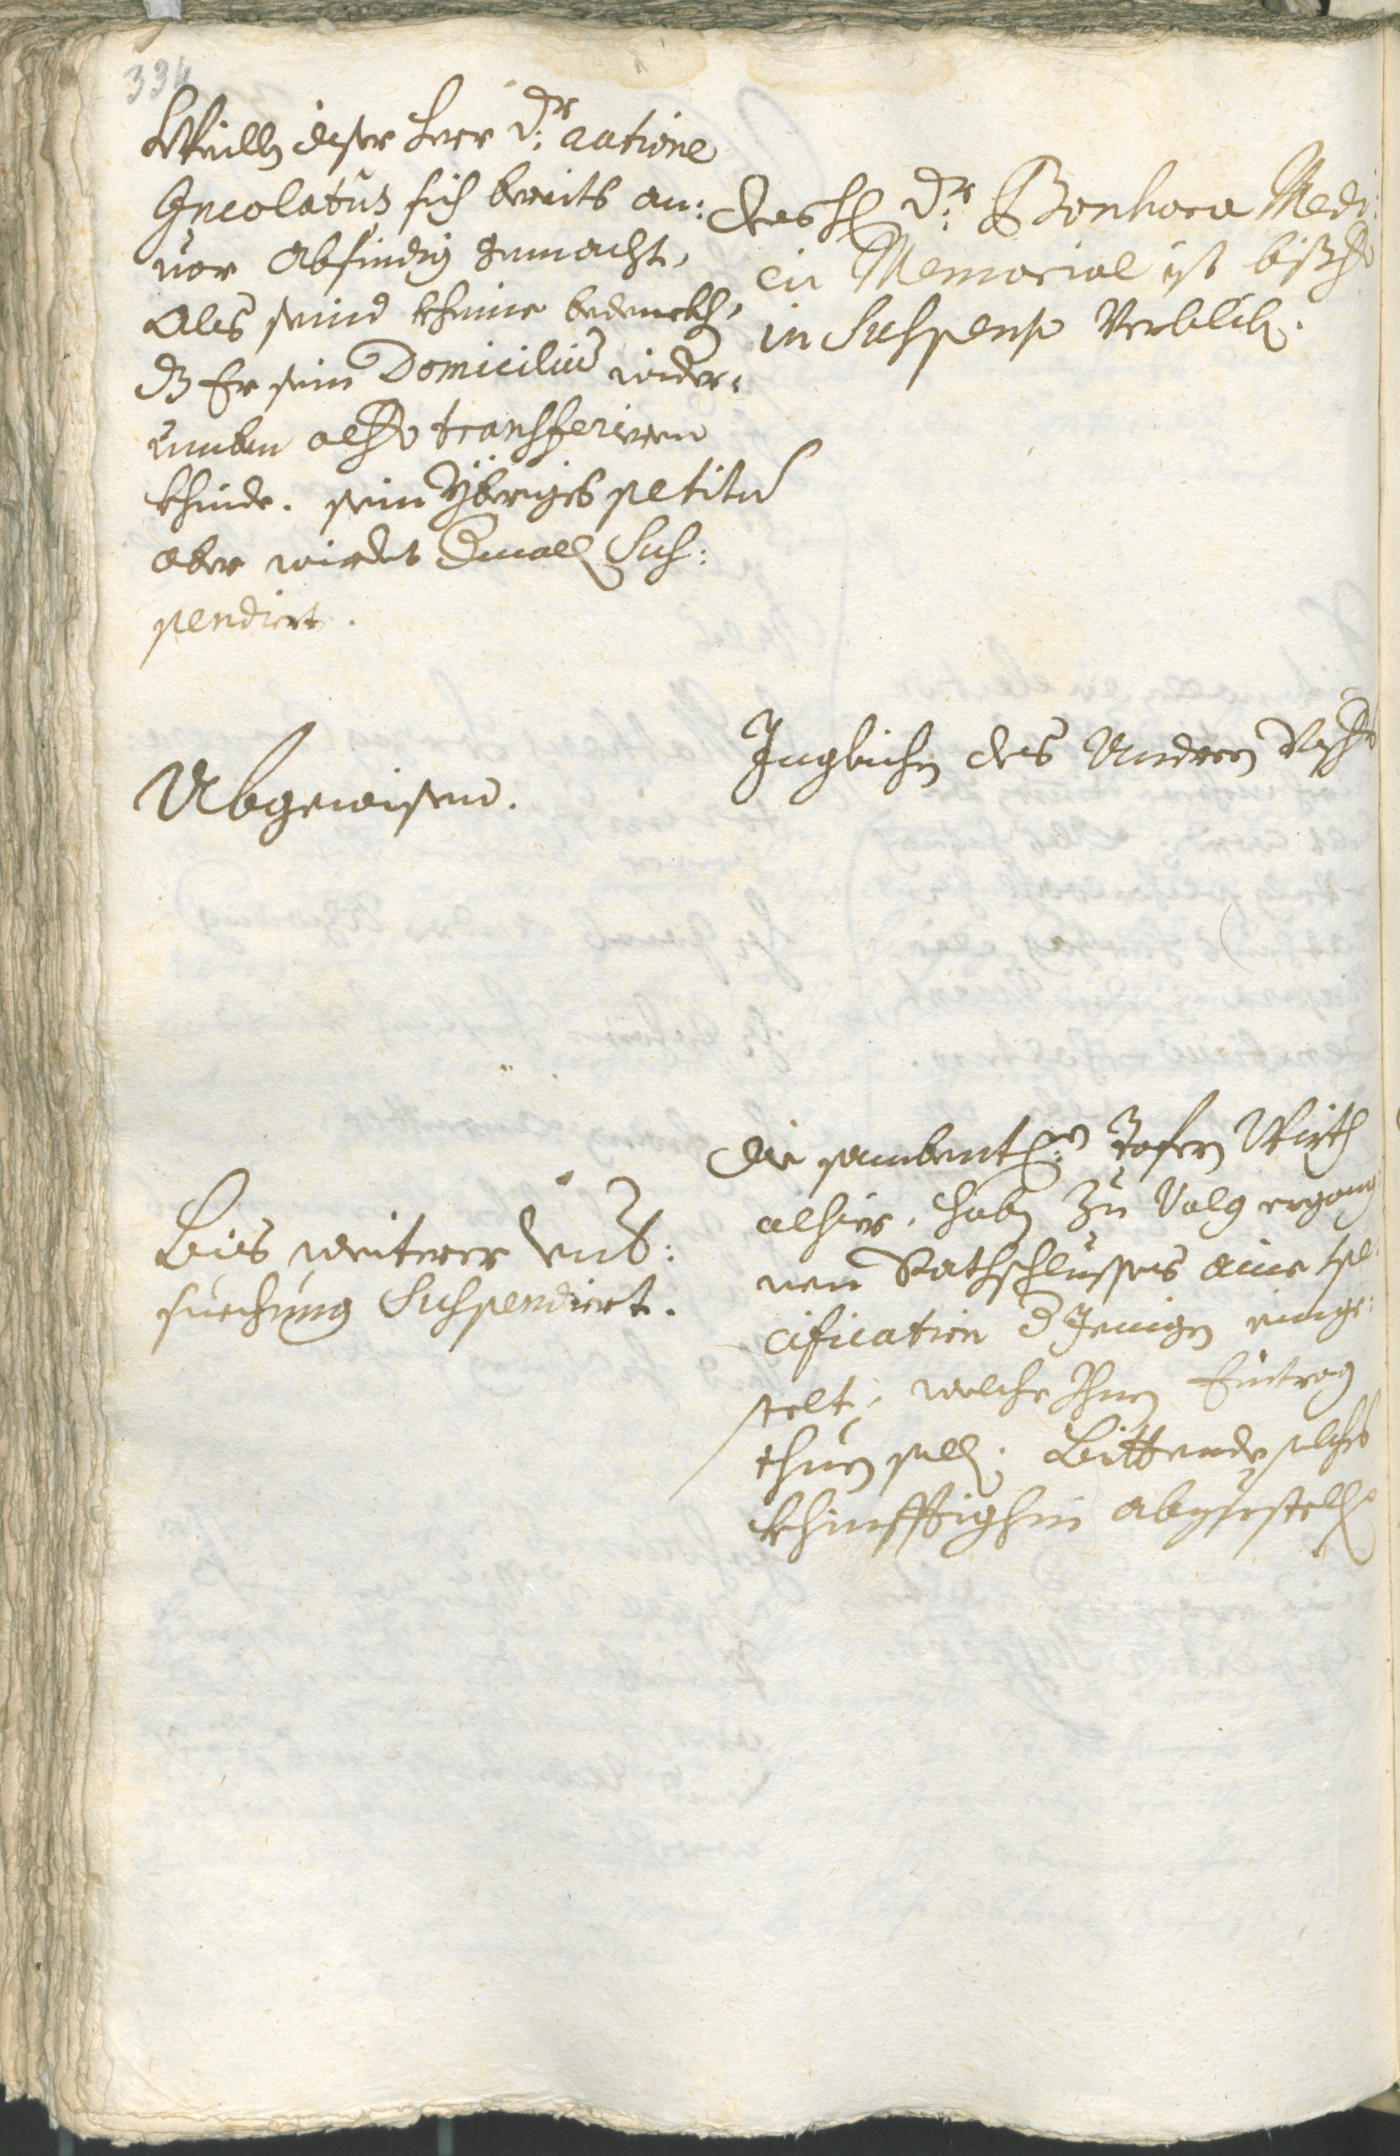 334
Weilln diser Herr Dr: ratione
Incolatus sich bereits an:
vor Abfindig gemacht,
Als seind kheine bedenckh,
dz Er sein Domicilium wider-
umben alhero transferieren
khinde. sein yberiges petitum
aber wirdet dmall Sus:
pendiert.
Des H Dr: Bonhora Medi:
ein Memorial ist bißher
in Suspenso Verblib.
Abgewisen.
Ingleichen des Andreen
Bis weiterer Undt:
suechung Suspendiert.
Die sambentl:en Tafern Wirth
alhier, haben Zu Volg ergang
nen Rathschlusses aine spe:
cification d Jenigen einge:
stelt, welche Ihnen Eintrag
thuen soll. Bittende solches
khinfftighin abzustelln